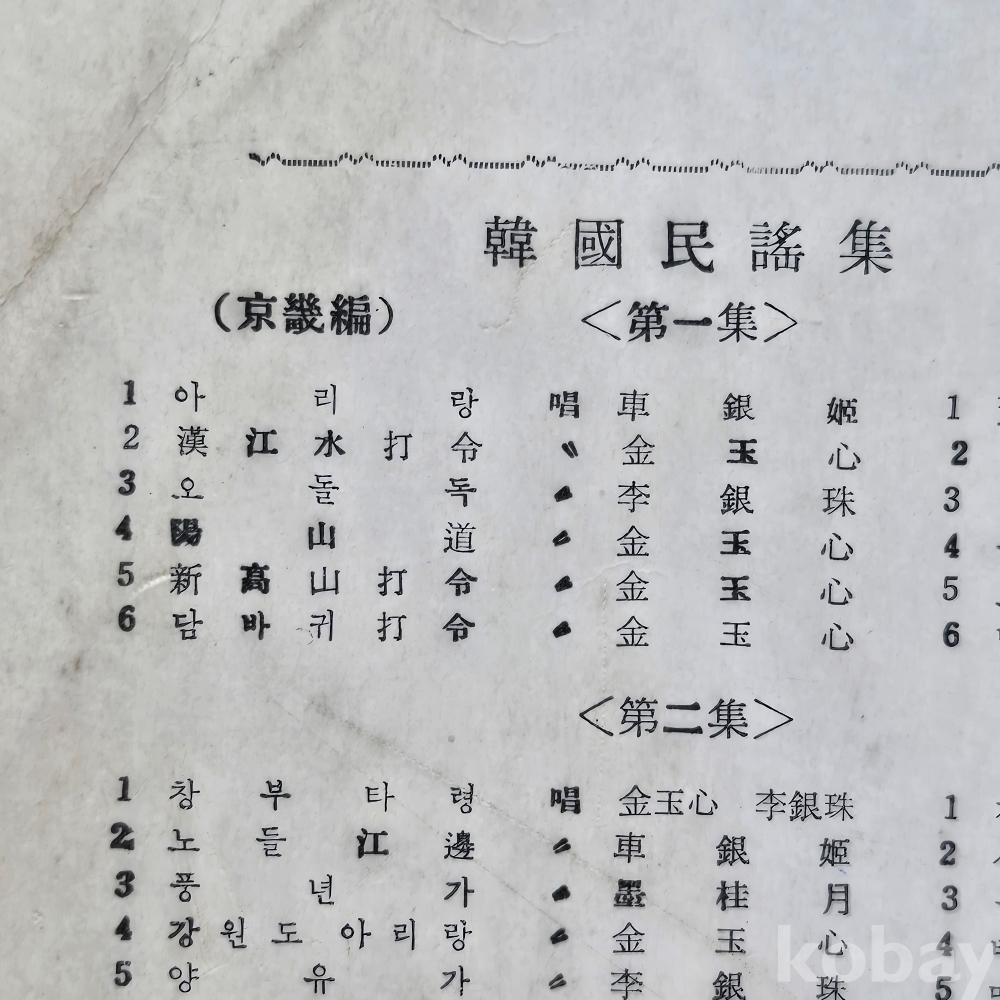 韓國民謠集
(京畿編) <第一集>
1 아리랑 唱 車銀姬 1
2 漢江水打令 〃 金玉心 2
3 오돌독 〃 李銀珠 3
4 陽山道 〃 金玉心 4
5 新高山打令 〃 金玉心 5
6 담바귀打令 〃 金玉心 6
<第二集>
1 창부타령 唱 金玉心 李銀珠 1
2 노들江邊 〃 車銀姬 2
3 풍년가 〃 墨桂月 3
4 강원도아리랑 〃 金玉心 4
5 양유가 〃 李銀珠 5
kobay